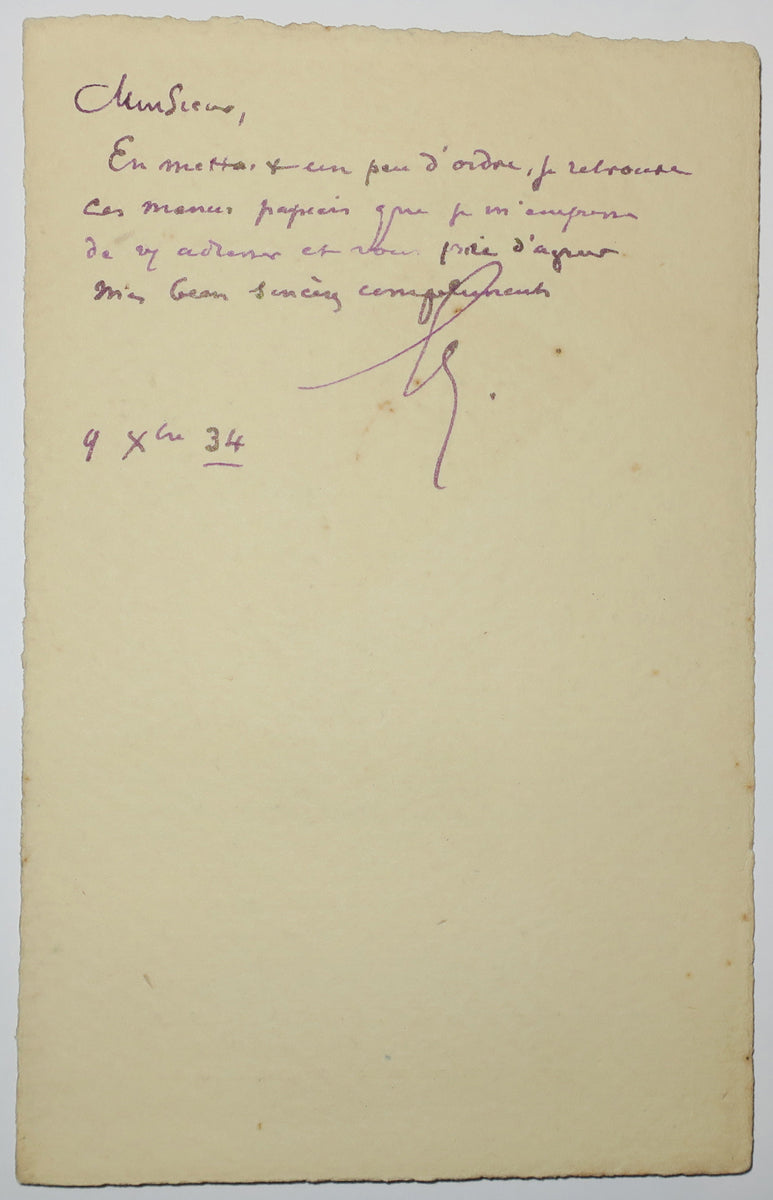 Monsieur,
En mettant un peu d'ordre, je retrouve
ces menus papiers que je m'empresse
de vs adresser et vous prie d'agréer
mes bien sincères compliments
9 Xbre 34